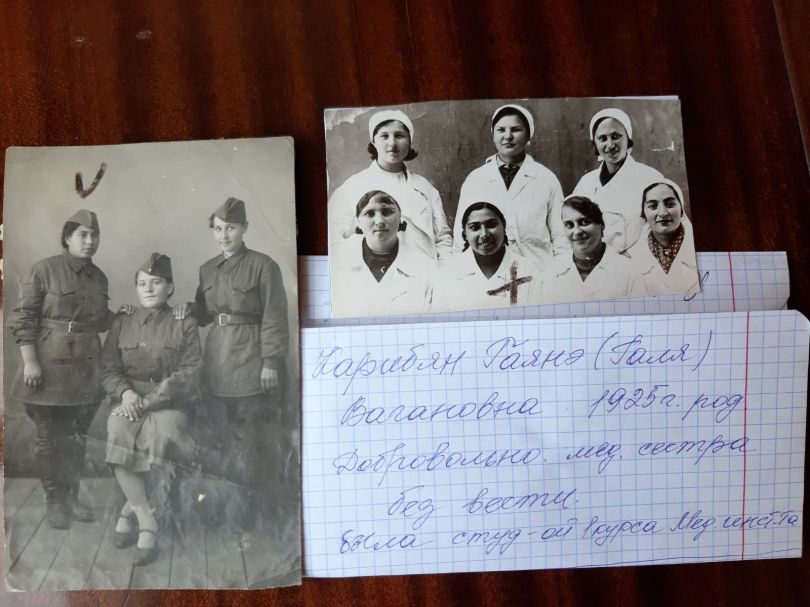 Карибян Гаянэ (Галя)
Вагановна 1925г. род.
Добровольно. мед. сестра
без вести.
была студ-ой 1 курса Мед. инст.та